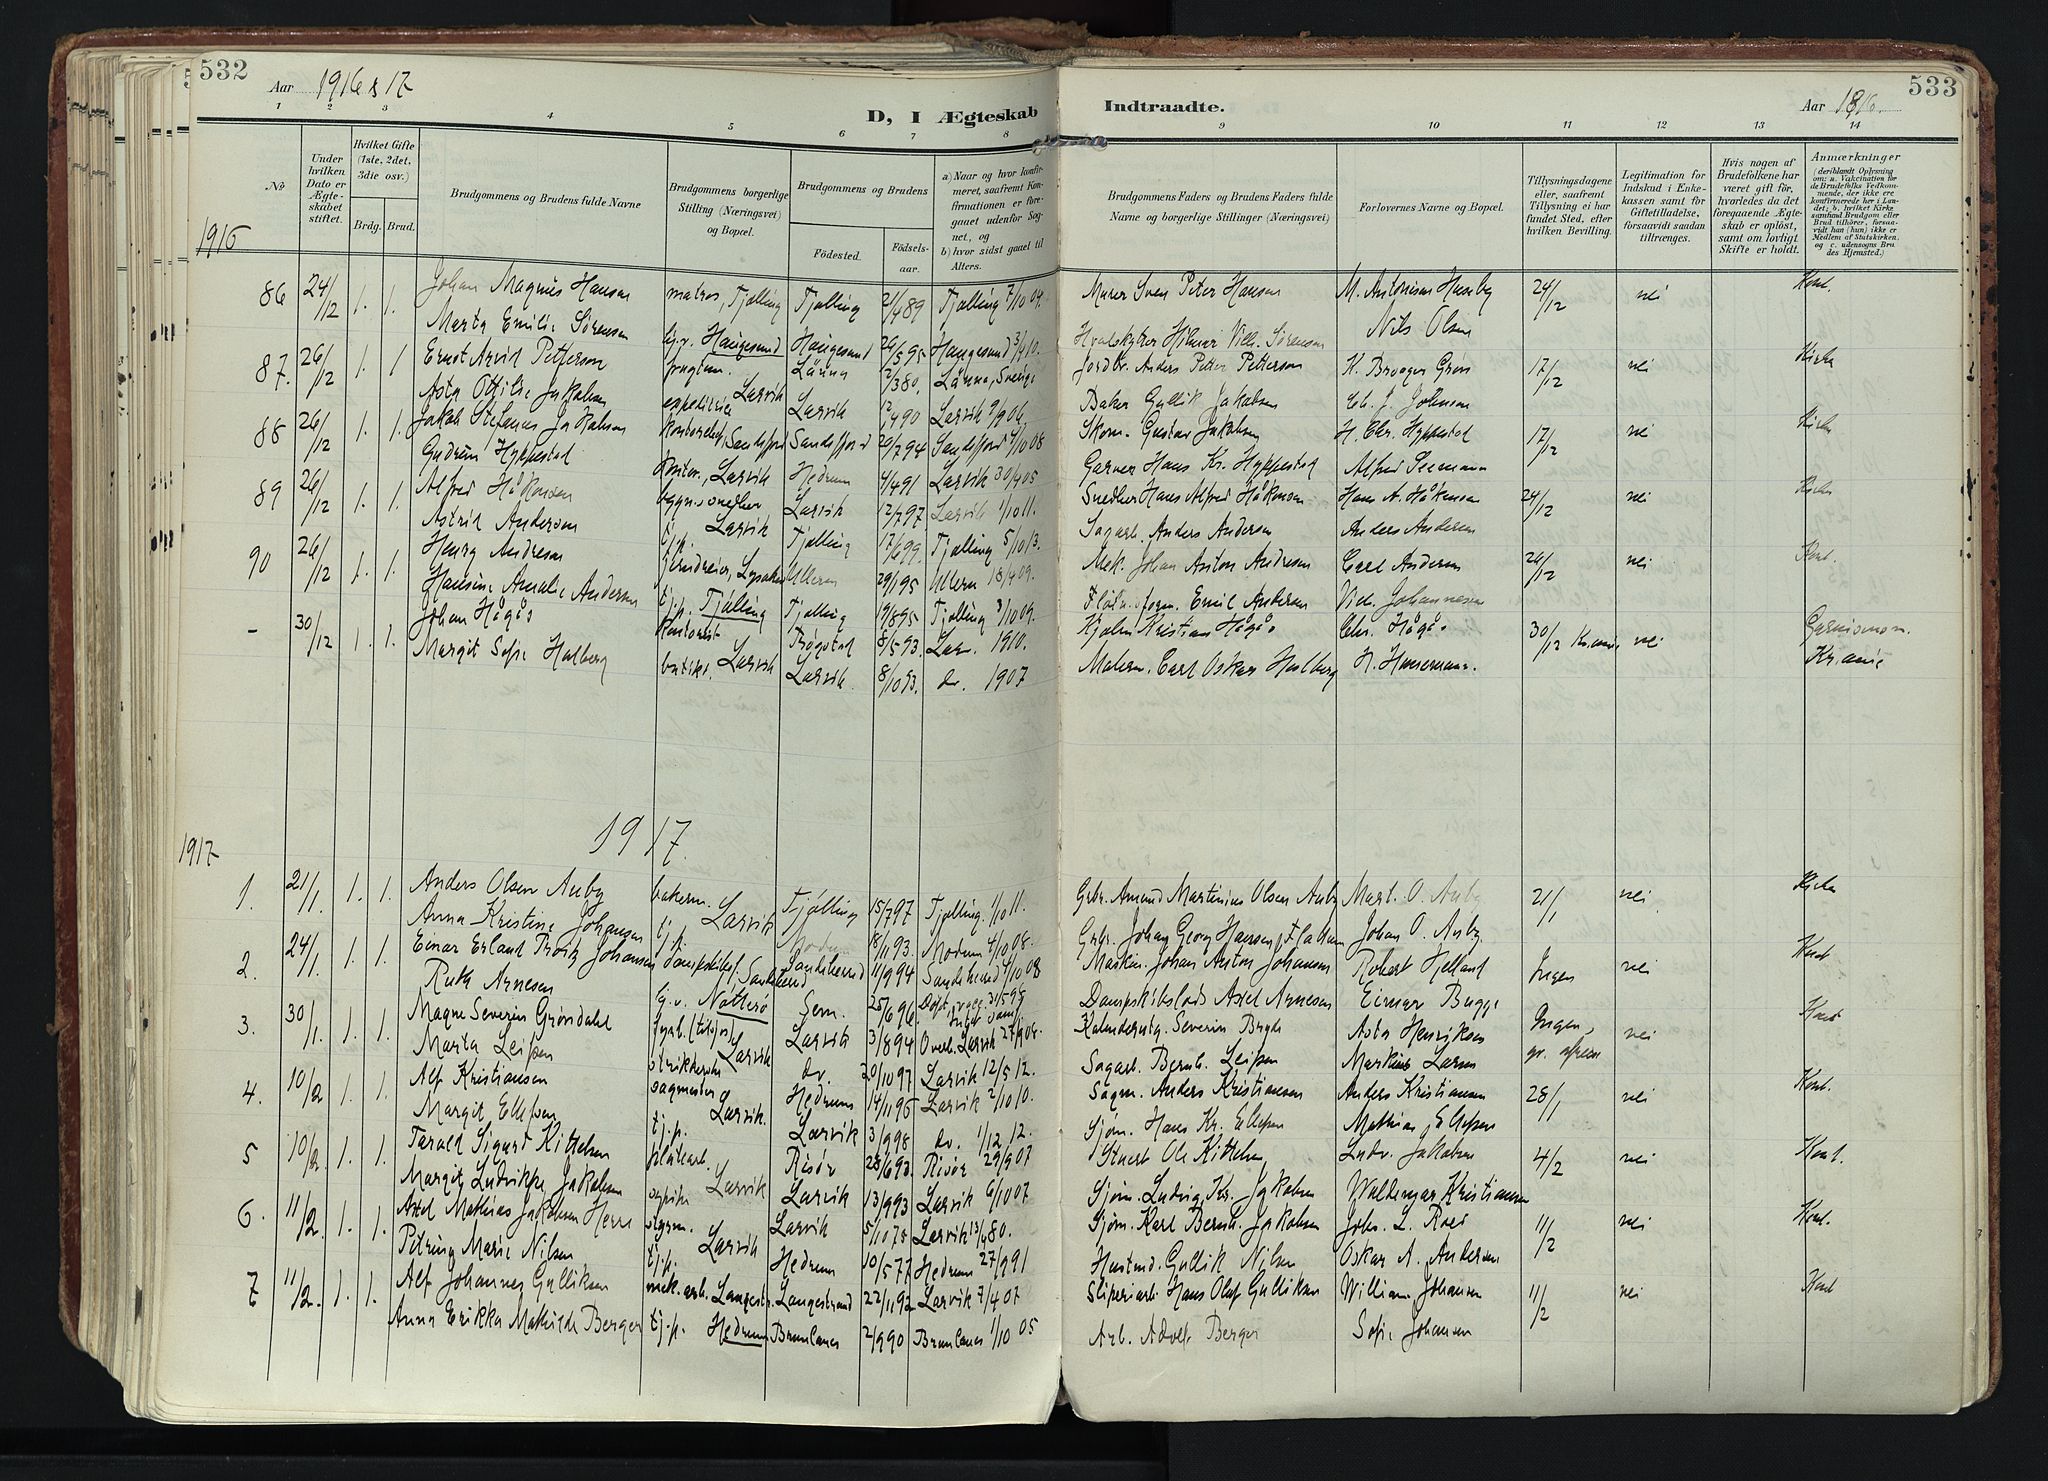 532
Aar 1916 & 17
D, I Ægteskab
Indtraadte.
Aar 1916.
533
1 2 3 4 5 6 7 8 9 10 11 12 13 14
No
Under hvilken Dato er Ægteskabet stiftet.
Hvilket Gifte (1ste, 2det, 3die osv.)
Brdg. Brud.
Brudgommens og Brudens fulde Navne
Brudgommens borgerlige Stilling (Næringsvei) og Bopæl.
Brudgommens og Brudens
Fødested.
Fødselsaar.
a) Naar og hvor konfirmeret, saafremt Konfirmationen er foregaaet udenfor Sognet, og
b) hvor sidst gaaet til Alters.
Brudgommens Faders og Brudens Faders fulde Navne og borgerlige Stillinger (Næringsvei)
Forlovernes Navne og Bopæl.
Tillysningsdagene eller, saafremt Tillysning ei har fundet Sted, efter hvilken Bevilling.
Legitimation for Indskud i Enkekassen samt for Giftetilladelse, forsaavidt saadan tiltrænges.
Hvis nogen af Brudefolkene har været gift før, hvorledes da det foregaaende Ægteskab er opløst, samt om lovligt Skifte er holdt.
Anmærkninger (deriblandt Oplysning om: a. Vakcination for de Brudefolks Vedkommende, der ikke ere konfirmerede her i Landet; b. hvilket Kirkesamfund Brudgom eller Brud tilhører, forsaavidt han (hun) ikke er Medlem af Statskirken, og c. udensogns Brudes Hjemsted.)
1916
86 24/12 1. 1. Johan Magnus Hansen matros, Tjølling Tjølling 21/4 89 Tjølling 2/10 04. Murer Sven Peter Hansen M. Antonisen Huseby 24/12 nei Kont.
Marta Emilie Sørensen tj.v. Haugesund Haugesund 26/5 95 Haugesund 3/4 10. Hvalskytter Hilmar Vilh. Sørensen Nils Olsen
87. 26/12 1. 1 Ernst Arvid Petterson Länna 2/3 80. Länna, Sverige Jordbr. Anders Petter Petterson K. Brooger Grøn 17/12 nei Kirke
Asta Ottilie Jakobsen expeditrice Larvik Larvik 12/4 90 Larvik 9/9 06. Baker Gullik Jakobsen Ch. J. Johnson
88 26/12 1. 1. Jakob Stefanus Jakobsen Sandefjord Sandefjord 20/7 94 Sandefjord 4/10 08 Skom. Gustav Jakobsen H. Chr. Hyppestad 17/12 nei Kirke
Gudrun Hyppestad kontor., Larvik Hedrum 4/4 91 Larvik 30/4 05 Garver Hans Kr. Hyppestad Alfred Seemann
89 26/12 1. 1. Alfred Håkonsen bygn.snedker Larvik 12/7 97 Larvik 1/10 11. Snedker Hans Alfred Håkonsen Hans A. Håkonsen 24/12 nei Kirke
Astrid Andersen tj.p. Larvik Tjølling 17/6 99. Tjølling 5/10 13. Sagarb. Anders Andersen Anders Andersen
90 26/12 1. 1. Henry Andresen jerndreier, Lysaker Ullern 29/1 95 Ullern 18/4 09. Mek. Johan Anton Andresen Carl Andersen 26/12 nei Kont.
Hansine Amalie Andersen tj.p. Tjølling Tjølling 19/8 95 Tjølling 3/10 09. Emil Andersen Vilh. Johannesen
- 30/12 1. 1. Johan Hågås kontorist Trøgstad 8/5 93. Larv. 1910. Kristian Hågås Chr. Hågås 30/12 Kr.ania nei Garnisonsm. Kr.ania
Margit Sofie Holberg butikk. Larvik Larvik. 8/10 93. do. 1907 Malerm. Carl Oskar Holberg
1917.
1917
1. 21/1. 1. 1. Anders Olsen Auby bakerm. Tjølling 15/7 97 Tjølling. 1/10 11. Grbr. Amund Martinius Olsen Auby Mart. O. Auby 21/1 nei Kirke
Anna Kristine Johansen tj.p. Larvik Modum 18/11 93. Modum 4/10 08. Grbr. Johan Georg Hansen, Johan O. Auby.
2. 24/1. 1. 1. Einar Erland Johansen Sandeherred 11/9 94 Sandeherred 4/10 08 Maskin. Johan Anton Johansen Robert Hjelland Ingen nei Kont
Ruth Arnesen tj.v. Nøtterø Sem. 25/6 96. Dampskibslods Axel Arnesen Einar Bugge
3. 30/1. 1. 1. Magne Severin Grøndahl Larvik 3/8 94 Larvik 27/9 08. Severin Bryde Asta Henriksen Ingen nei Kont
Marta Leifsen Larvik do. 20/10 97 Larvik 12/5 12. Sagarb. Bernh. Leifsen Markus Larsen
4. 10/2 1. 1. Alf Kristiansen sagmester Hedrum 14/11 96 Larvik 2/10 10. Sagm. Anders Kristiansen Anders Kristiansen 28/1 nei Kont.
Margit Ellefsen tj.p. Larvik. Larvik 3/9 98 do. 1/12 12. Sjøm. Hans Kr. Ellefsen Mathias Ellefsen
5 10/2. 1. 1. Tarald Sigurt Kittelsen Risør 28/6 93. Risør 29/9 07 Stuert Ole Kittelsen Ludv. Jakobsen 4/2 nei Kont.
Margit Ludvikke Jakobsen syerske Larvik Larvik 13/9 93 Larvik 6/10 07 Sjøm. Ludvig Kr. Jakobsen Waldemar Kristiansen
6. 11/2. 1. 1. Axel Mathias Jakobsen Herre Larvik 5/10 75 Larvik Sjøm. Karl Bernh. Jakobsen Johs. L. Roed 11/2 nei Kont.
Petrina Marie Nilsen tj.p. Larvik Hedrum 10/5 77 Hedrum 27/9 91 Husmd. Gullik Nilsen Oskar A. Andersen
7 11/2. 1. 1. Alf Johannes Gulliksen mek. arb. Langestr. Langestrand 22/11 92 Larvik 7/4 07 Sliperiarb. Hans Olaf Gulliksen William Johansen 11/2 nei Kont
Anna Erikka Mathilde Berger tj.p. Hedrum Brunlanes 2/9 90 Brunlanes 1/10 05 Arb. Adolf Berger Sofie Johansen